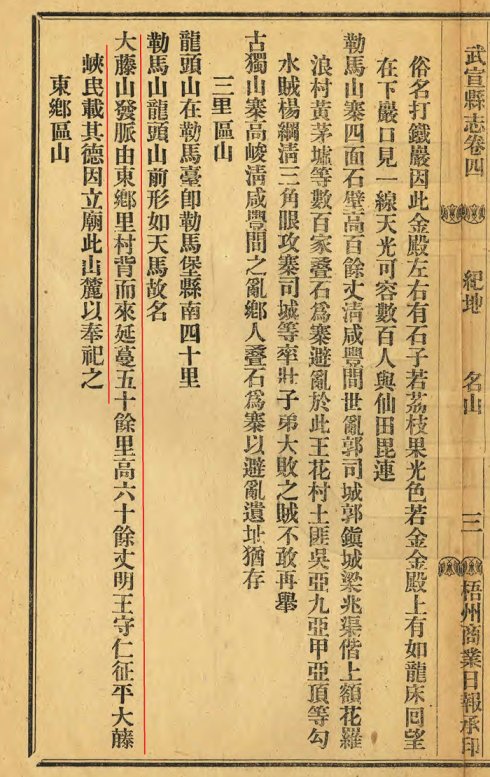 武宣縣志卷四
紀地
名山
三
梧州商業日報承印
俗名打鐵巖因此金殿左右有石子若荔枝果光色若金金殿上有如龍床回望
在下巖口見一線天光可容數百人與仙田毘連
勒馬山寨四面石壁高百餘丈清咸豐間世亂郭司城郭鎭城梁兆渠偕上額花羅
浪村黃茅墟等數百家叠石爲寨避亂於此王花村土匪吳亞九亞甲亞頂等勾
水賊楊綱淸三角眼攻寨司城等率壯子弟大敗之賊不敢再舉
古獨山寨高峻淸咸豐間之亂鄉人叠石爲寨以避亂遺址猶存
三里區山
龍頭山在勒馬臺卽勒馬堡縣南四十里
勒馬山龍頭山前形如天馬故名
大藤山發脈由東鄉里村背而來延蔓五十餘里高六十餘丈明王守仁征平大藤
峽民載其德因立廟此山麓以奉祀之
東鄉區山